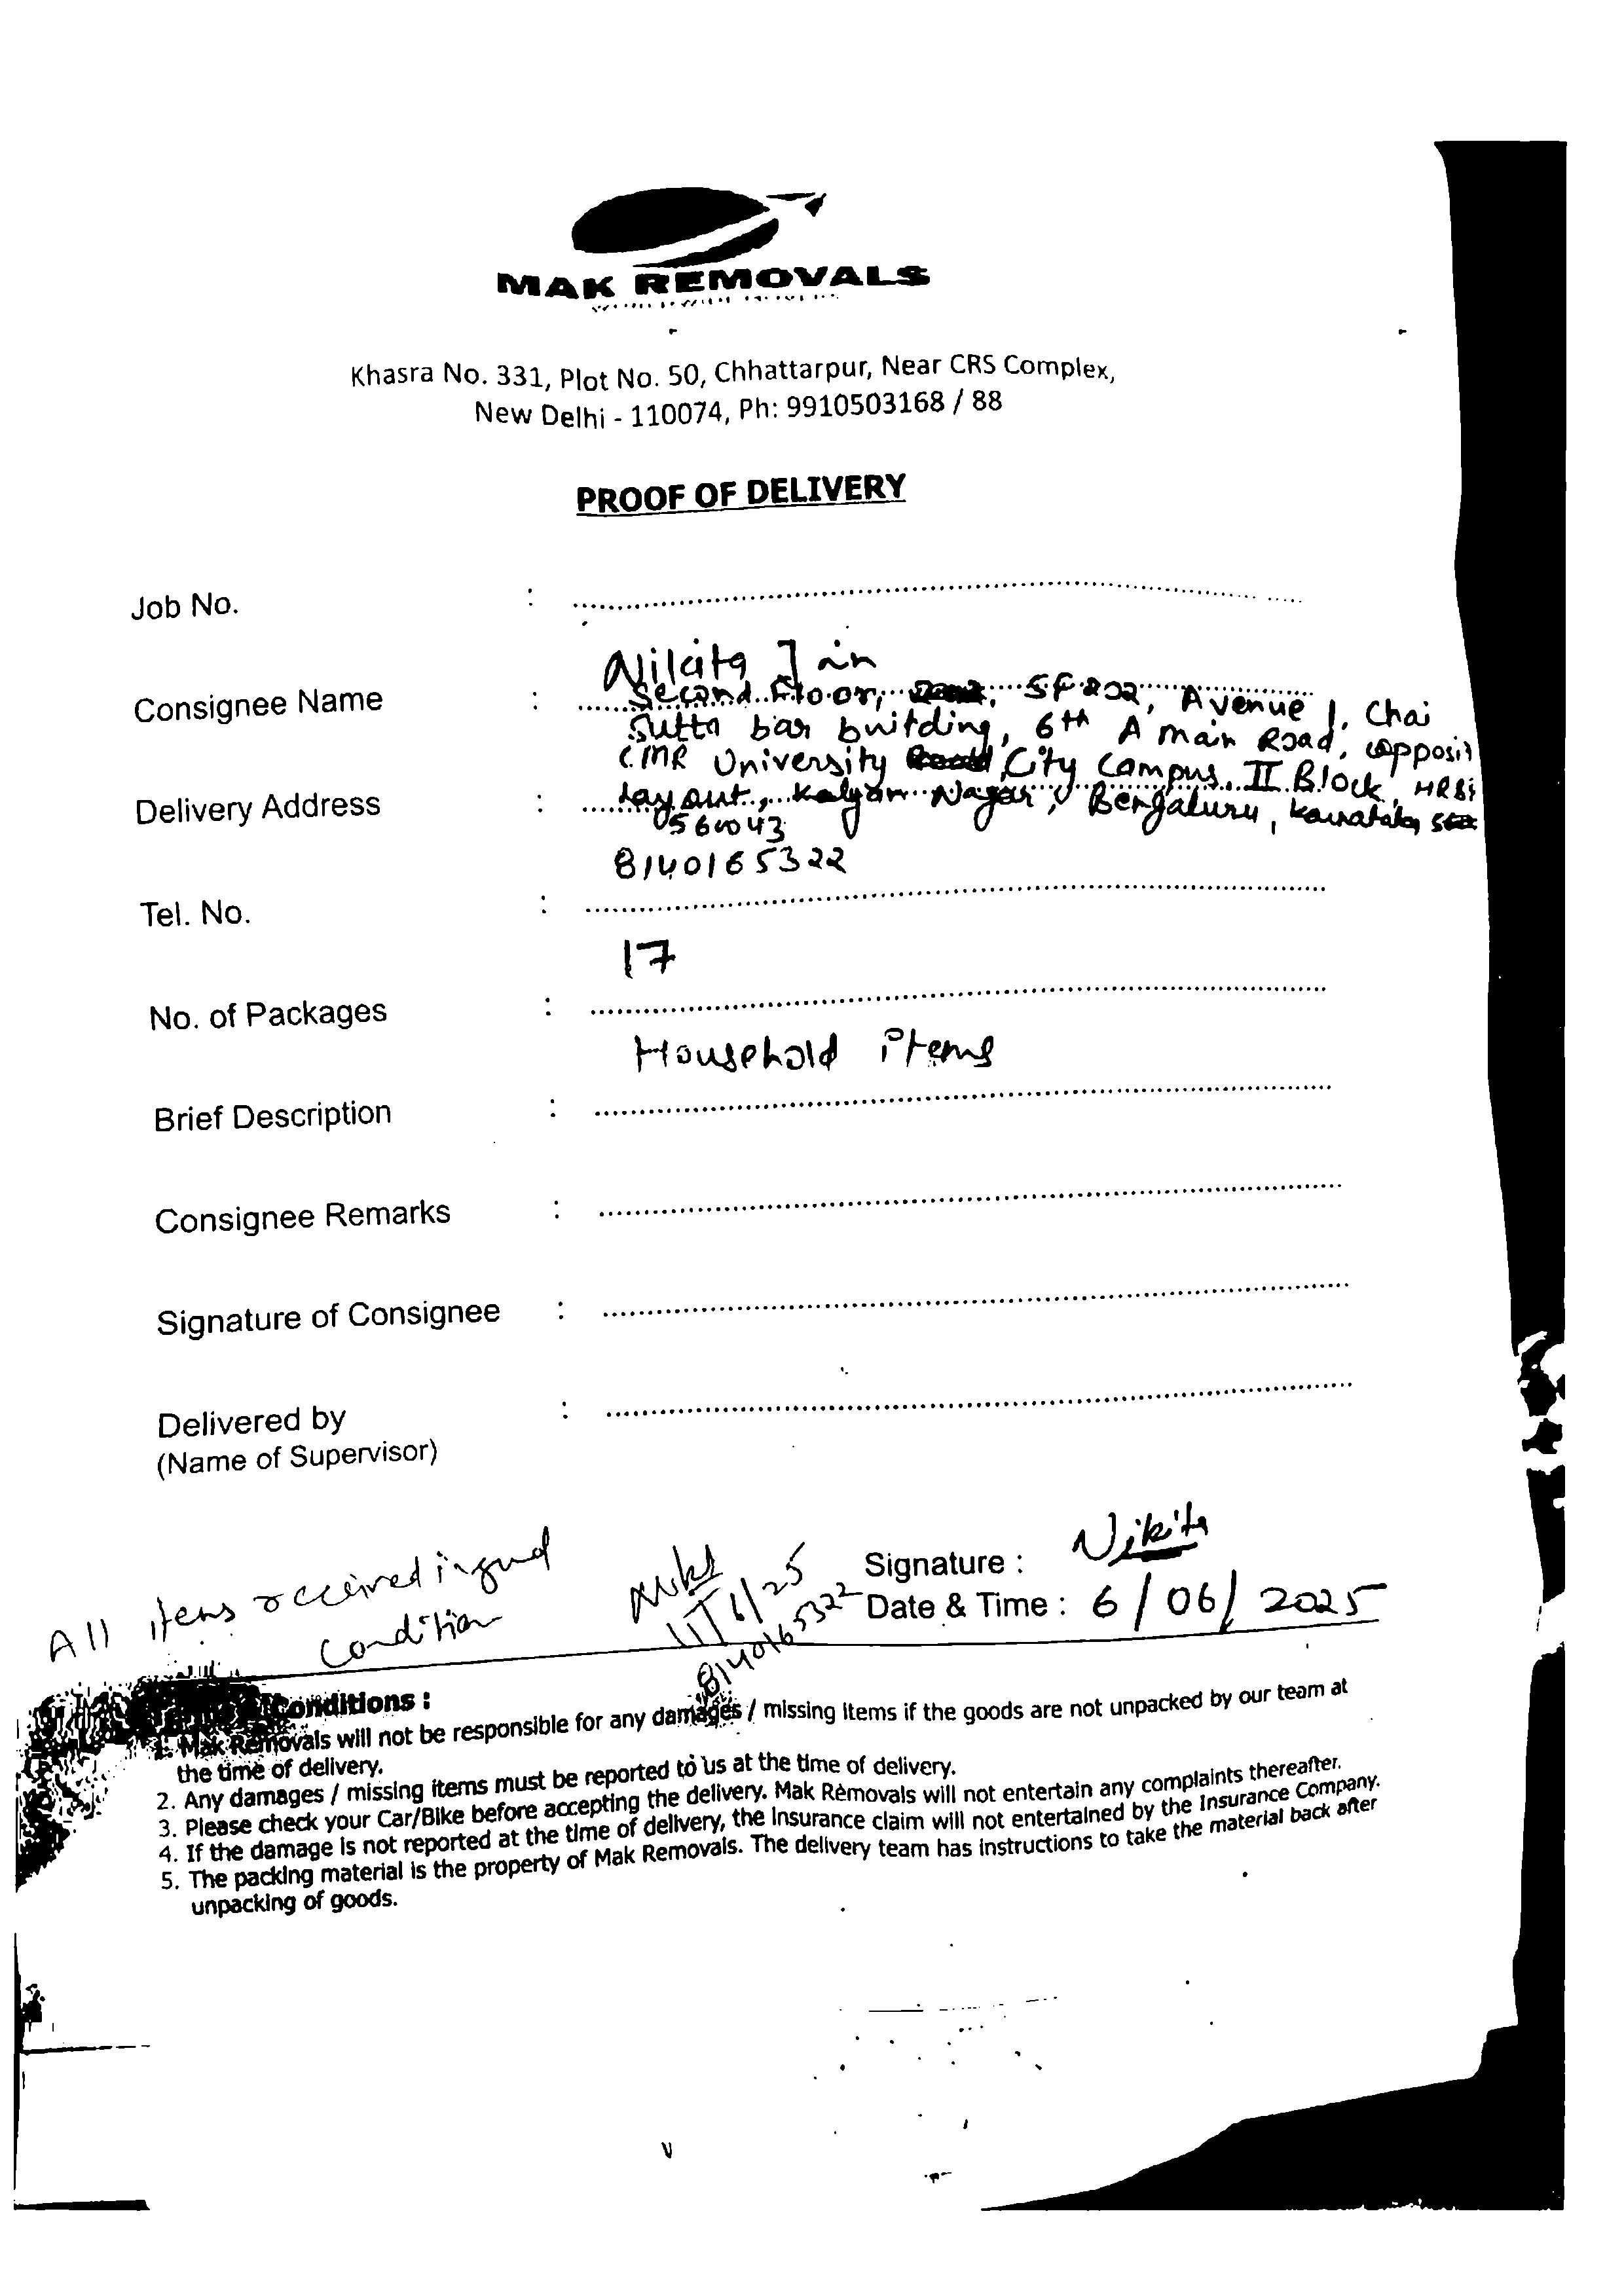 MAK REMOVALS
Khasra No. 331, Plot No. 50, Chhattarpur, Near CRS Complex,
New Delhi - 110074, Ph: 9910503168 / 88
PROOF OF DELIVERY
Job No. :
Nikita Jain
Consignee Name :
Second Floor, SF 202, Avenue 1, Chai
Sutta bar building, 6th A main Road, opposit
CMR University City Campus, II Block, HRBR
Delivery Address :
Layout, Kalyan Nagar, Bengaluru, Karnataka
560043
8140165322
Tel. No. :
17
No. of Packages :
Household items
Brief Description :
Consignee Remarks :
Signature of Consignee :
Delivered by :
(Name of Supervisor)
Signature : Nikita
Date & Time : 6/06/2025
All items received in good
condition
11/6/25
8140165322
Conditions :
1. Mak Removals will not be responsible for any damages / missing items if the goods are not unpacked by our team at
the time of delivery.
2. Any damages / missing items must be reported to us at the time of delivery.
3. Please check your Car/Bike before accepting the delivery. Mak Removals will not entertain any complaints thereafter.
4. If the damage is not reported at the time of delivery, the Insurance claim will not entertained by the Insurance Company.
5. The packing material is the property of Mak Removals. The delivery team has instructions to take the material back after
unpacking of goods.